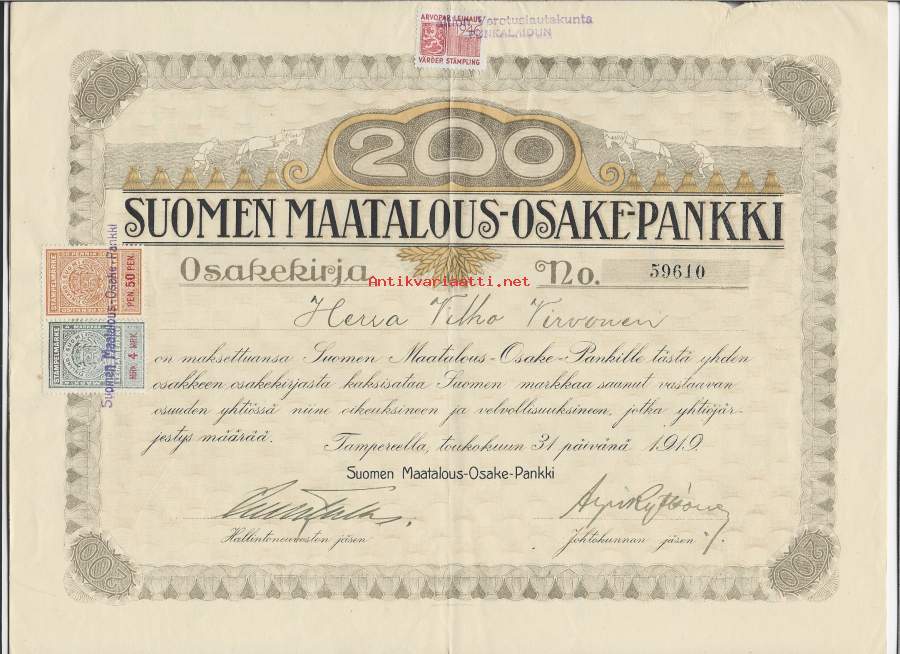 ARVOPAP. LEIMAUS
1946
VÄRDEP. STÄMPLING
Verotuslautakunta
PUNKALAIDUN
200
200
200
SUOMEN MAATALOUS-OSAKE-PANKKI
Osakekirja No. 59610
Antikvariaatti.net
Herra Vilho Virvonen
on maksettuansa Suomen Maatalous-Osake-Pankille tästä yhden
osakkeen osakekirjasta kaksisataa Suomen markkaa saanut vastaavan
osuuden yhtiössä niine oikeuksineen ja velvollisuuksineen, jotka yhtiöjär-
jestys määrää. Tampereella, toukokuun 31 päivänä 1919.
Suomen Maatalous-Osake-Pankki
Hallintoneuvoston jäsen Johtokunnan jäsen
STÄMPELMÄRKE
50 PENNIÄ
PEN. 50 PEN.
STÄMPELMÄRKE
4 MARKKAA
MRK. 4 MRK.
Suomen Maatalous-Osake-Pankki
200
200